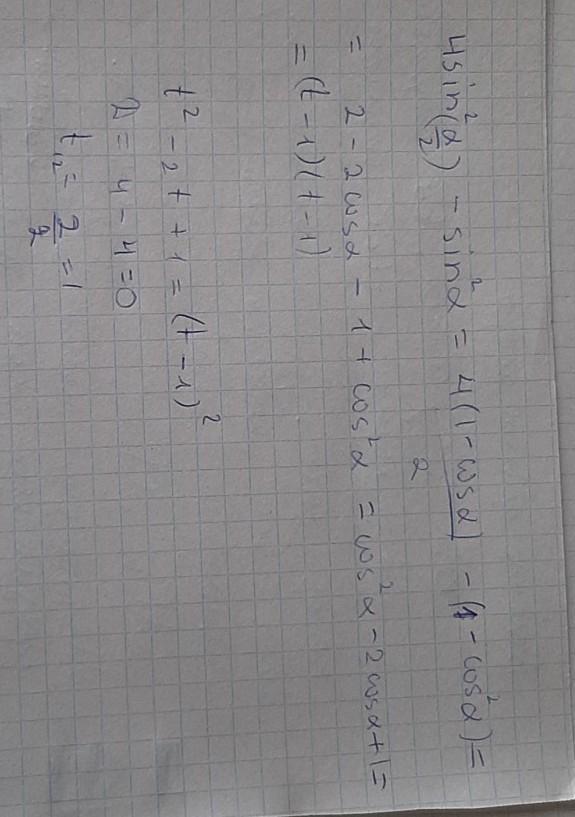 4sin²(α/2) - sin²α = 4(1-cosα)/2 - (1-cos²α) =
= 2 - 2cosα - 1 + cos²α = cos²α - 2cosα + 1 =
= (t-1)(t-1)
t² - 2t + 1 = (t-1)²
D = 4 - 4 = 0
t₁₂ = 2/2 = 1